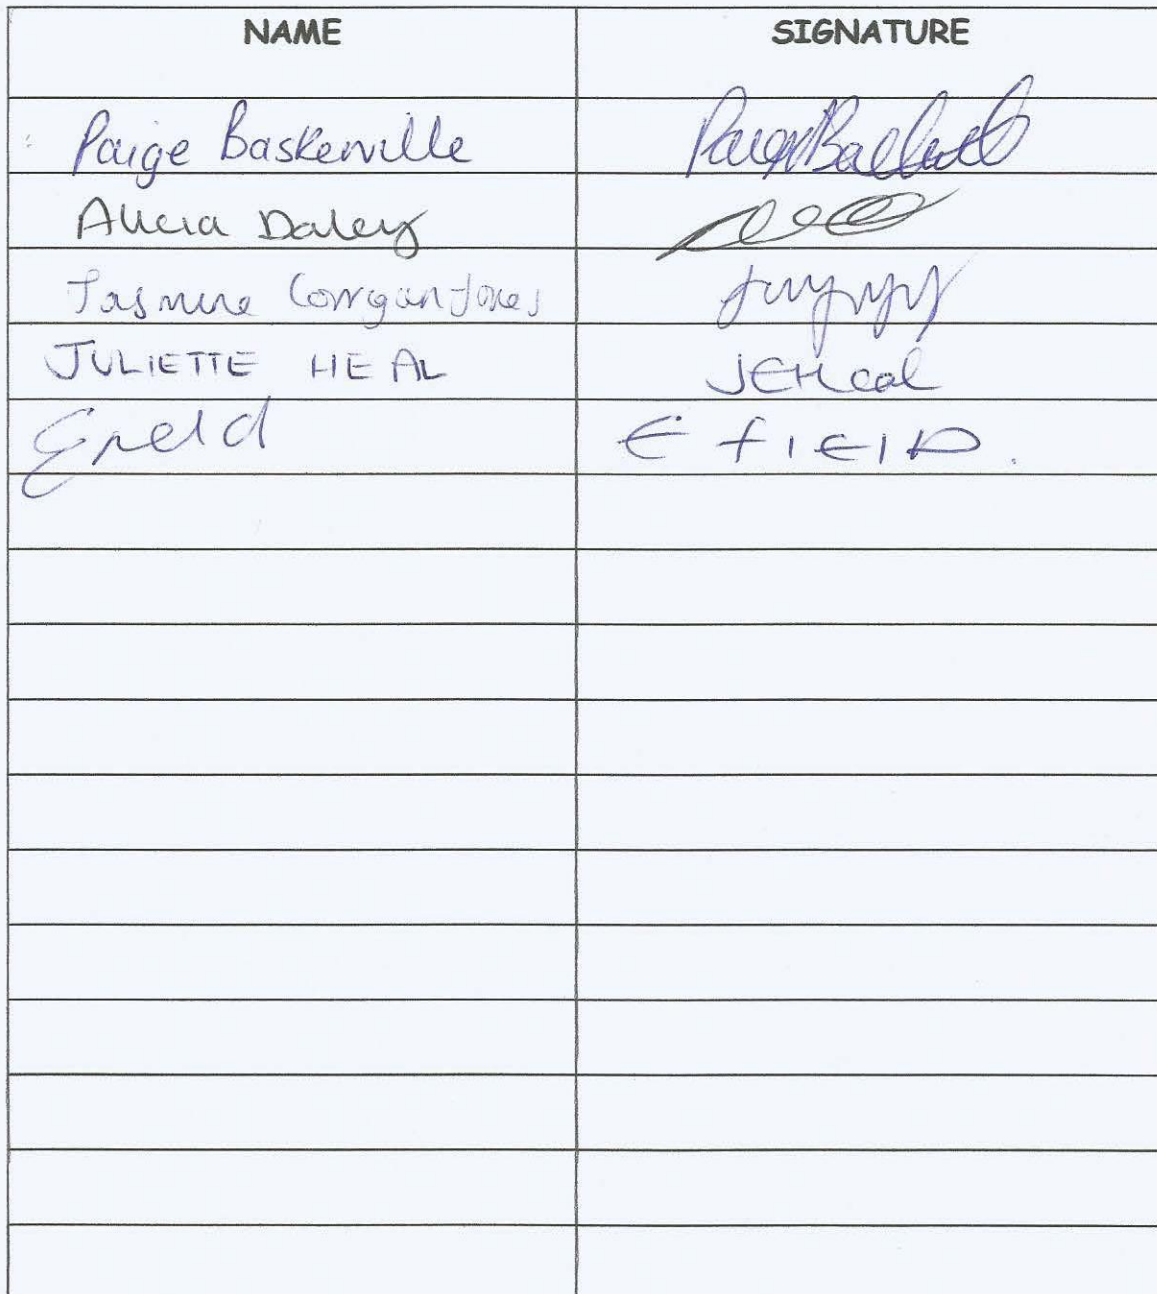 NAME SIGNATURE
Paige Baskerville
Alicia Daley
Jasmine Corrigan-Jones
JULIETTE HEAL JEHeal
Efield E fIEID.